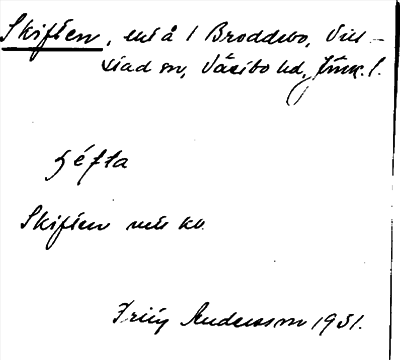 Skiften, enh å 1 Broddebo, Vill-
stad sn, Västbo hd, Jönk. l.
ʃéfta
Skiften utt. kv.
Friis Andersson 1931.